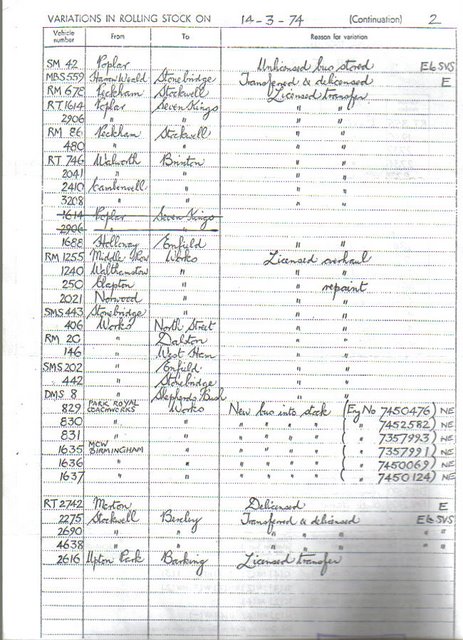 VARIATIONS IN ROLLING STOCK ON 14-3-74 (Continuation) 2
Vehicle number From To Reason for variation
SM 42 Poplar Unlicensed bus stored E6 SVS
MBS 559 Harrow Weald Stonebridge Transferred & delicensed E
RM 678 Peckham Stockwell Licensed transfer
RT 1614 Poplar Seven Kings " "
2906 " " " "
RM 86 Peckham Stockwell " "
480 " " " "
RT 746 Walworth Brixton " "
2041 " " " "
2410 Camberwell " " "
3208 " " " "
1614 Poplar Seven Kings
2906 " "
1688 Holloway Enfield " "
RM 1255 Middle Row Works Licensed overhaul
1240 Walthamstow " " "
250 Clapton " " repaint
2021 Norwood " " "
SMS 443 Stonebridge " " "
406 Works North Street " "
RM 20 " Dalston " "
146 " West Ham " "
SMS 202 " Enfield " "
442 " Stonebridge " "
DMS 8 " Shepherds Bush " "
829 PARK ROYAL COACHWORKS Works New bus into stock (Eng No 7450476) NE
830 " " " " " " ( " 7452582) NE
831 " " " " " " ( " 7357993) NE
1635 MCW BIRMINGHAM " " " " " ( " 7357991) NE
1636 " " " " " " ( " 7450069) NE
1637 " " " " " " ( " 7450124) NE
RT 2742 Merton Delicensed E
2275 Stockwell Bexley Transferred & delicensed E6 SVS
2690 " " " " " " "
4638 " " " " " " "
2616 Upton Park Barking Licensed transfer